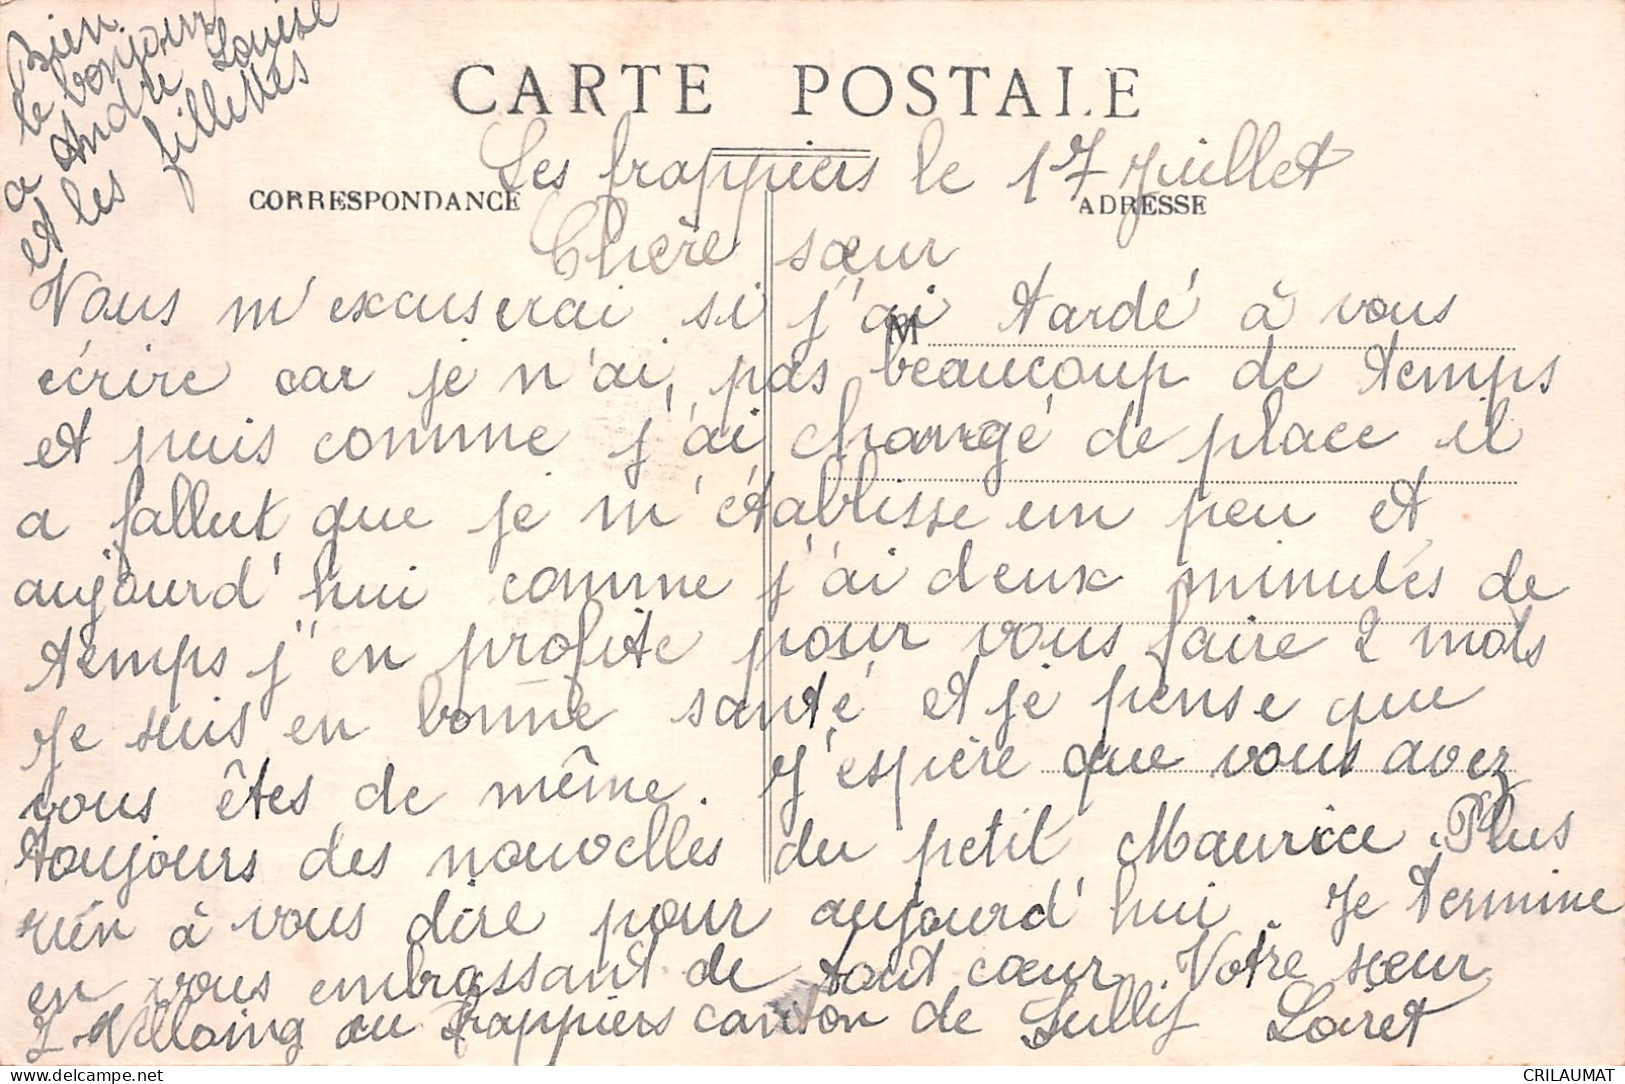 Bien
le bonjour
a Andre Louise
et les fillettes
CARTE POSTALE
CORRESPONDANCE
ADRESSE
M
Les frappiers le 17 Juillet
Chère sœur
Vous m'excuserai si j'ai tardé à vous
écrire car je n'ai pas beaucoup de temps
et puis comme j'ai changé de place il
a fallut que je m'établisse um peu et
aujourd'hui comme j'ai deux minutes de
temps j'en profite pour vous faire 2 mots
Je suis en bonne santé et je pense que
vous êtes de même. J'espère que vous avez
toujours des nouvelles du petit Maurice. Plus
rien à vous dire pour aujourd'hui. Je termine
en vous embrassant de tout cœur Votre sœur
au frappiers canton de Sully Loiret
CRILAUMAT
delcampe.net